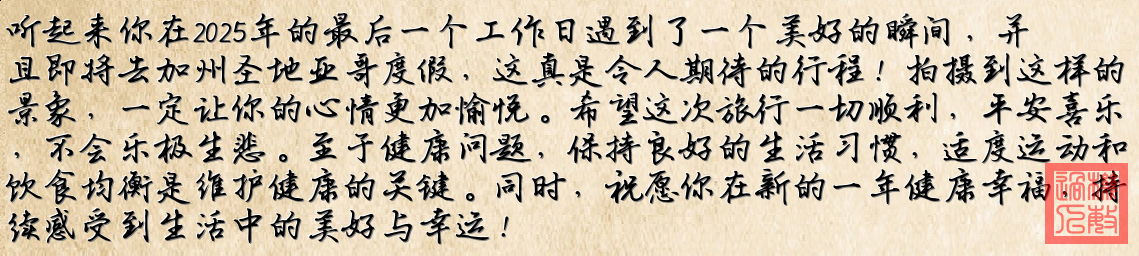 听起来你在2025年的最后一个工作日遇到了一个美好的瞬间，并
且即将去加州圣地亚哥度假，这真是令人期待的行程！拍摄到这样的
景象，一定让你的心情更加愉悦。希望这次旅行一切顺利，平安喜乐
，不会乐极生悲。至于健康问题，保持良好的生活习惯，适度运动和
饮食均衡是维护健康的关键。同时，祝愿你在新的一年健康幸福，持
续感受到生活中的美好与幸运！